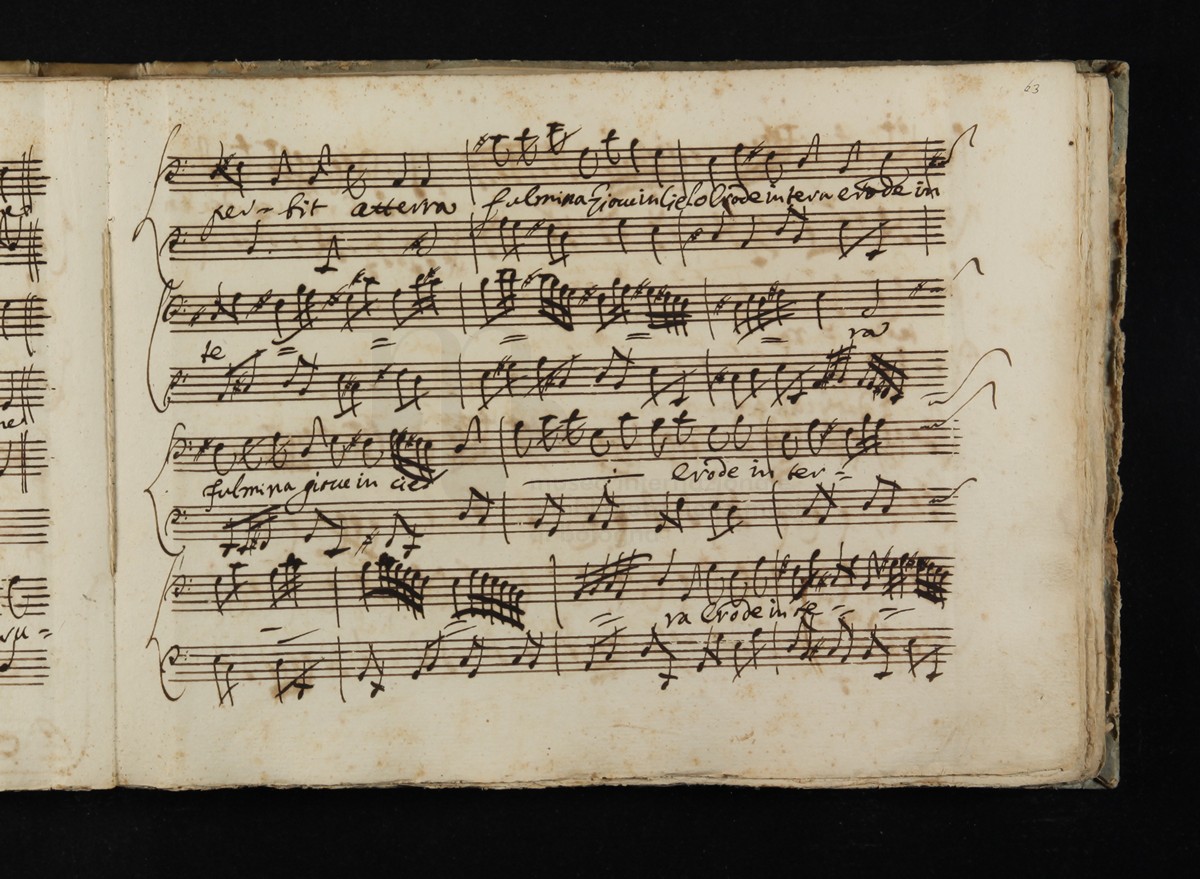 63
per- bit atterra fulmina Gioue in Ciel Erode in terra erode in
te
ra
fulmina gioue in ciel erode in ter-
ra Erode in te